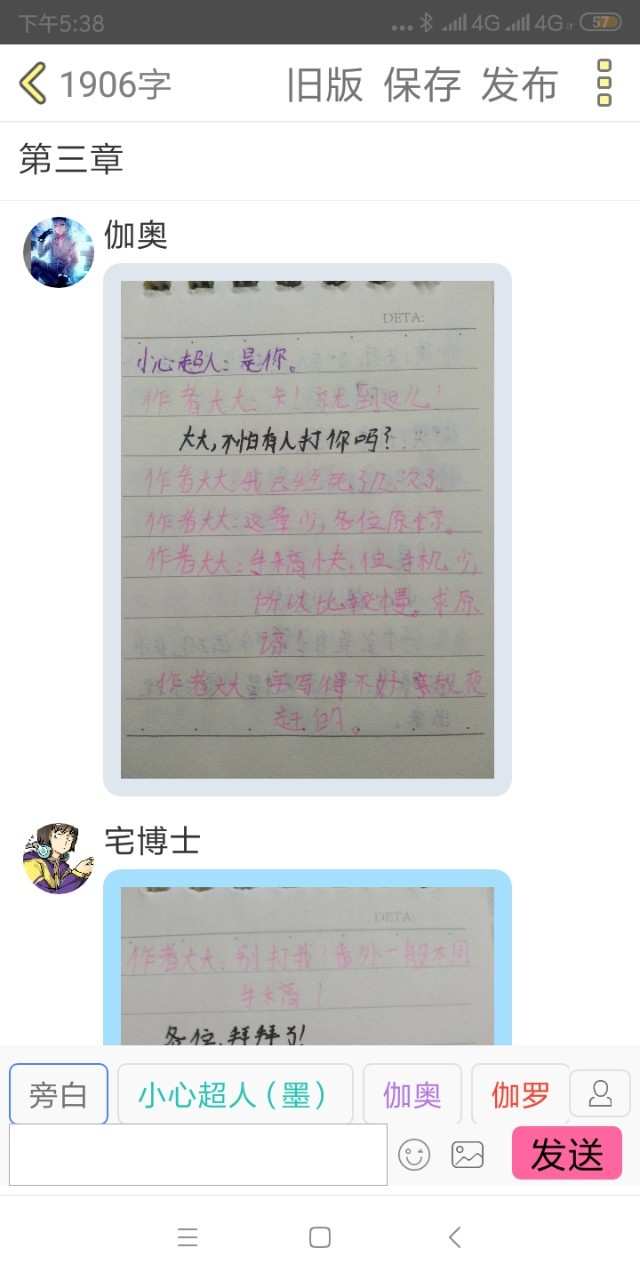 下午5:38
4G 4G 57
1906字 旧版 保存 发布
第三章
伽奥
DETA:
小心超人：是你。
作者大大：卡！就到这儿！
大大，不怕有人打你吗？
作者大大：我已经死了几次了。
作者大大：这章少，各位原谅。
作者大大：手稿快，但手机少，
所以比较慢。求原
谅！
作者大大 字写得不好 熬夜
赶的。
宅博士
DETA:
作者大大：别打我！番外一般不用
手稿！
各位，拜拜了！
旁白 小心超人（墨） 伽奥 伽罗
发送